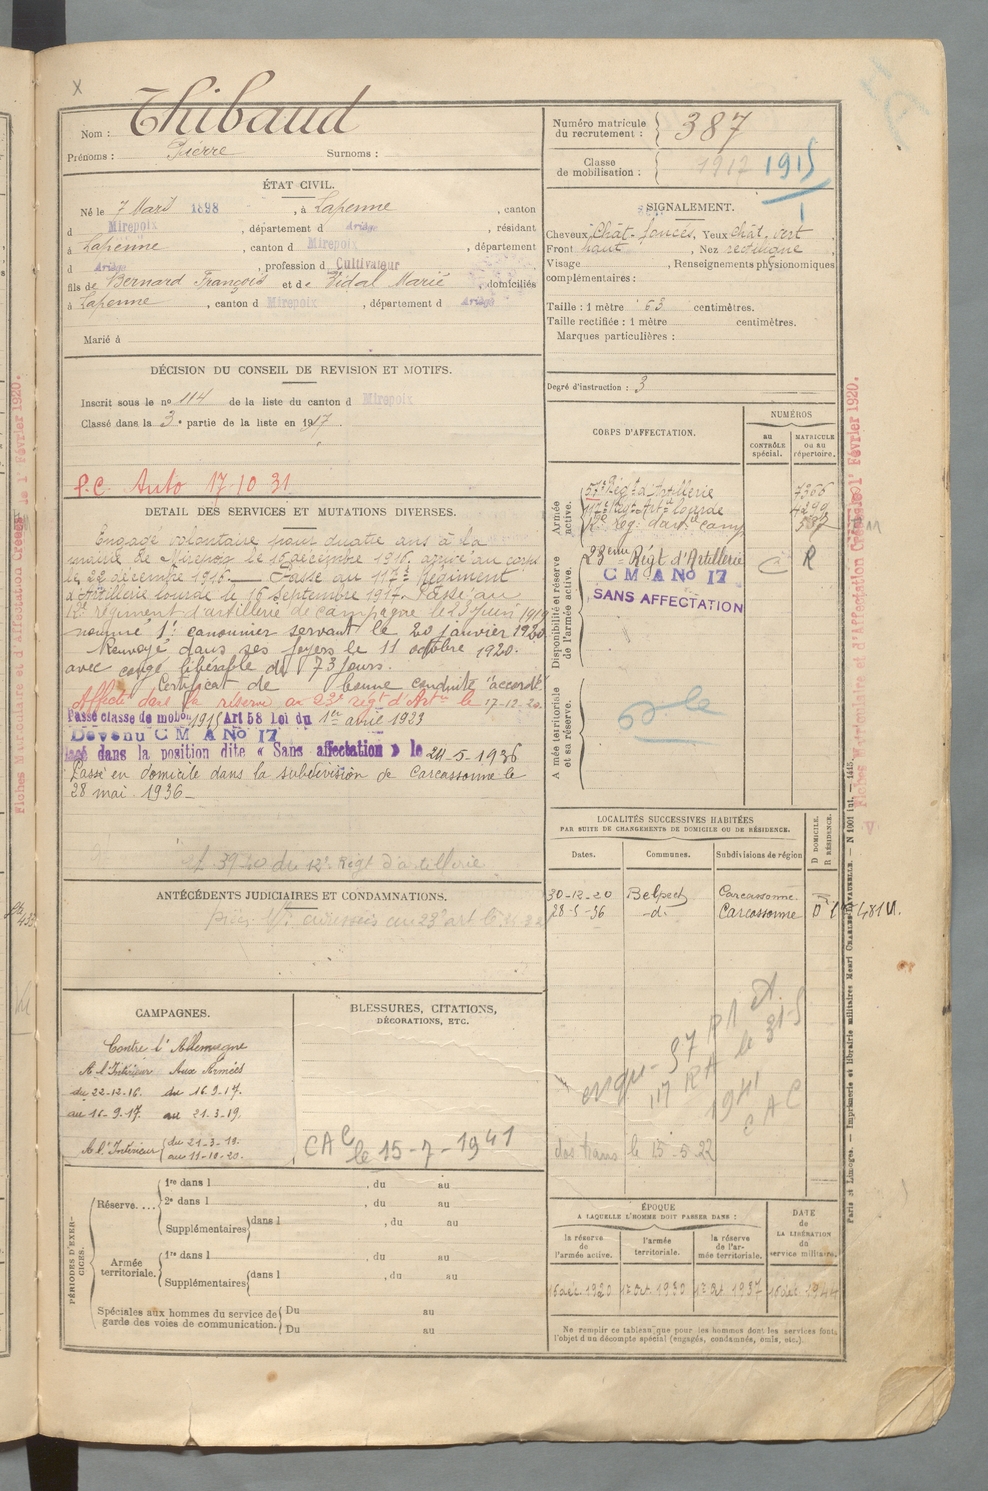 Nom : Thibaud
Prénoms : Pierre Surnoms :
Numéro matricule du recrutement : 387
Classe de mobilisation : 1917 1915
ÉTAT CIVIL.
Né le 7 Mars 1898, à Lapenne, canton
d Mirepoix, département d Ariège, résidant
à Lapenne, canton d Mirepoix, département
d Ariège, profession d Cultivateur
fils de Bernard François et de Vidal Marie, domiciliés
à Lapenne, canton d Mirepoix, département d Ariège
Marié à
SIGNALEMENT.
Cheveux Chât. foncés, Yeux chât. vert,
Front haut, Nez rectiligne,
Visage , Renseignements physionomiques
complémentaires :
Taille : 1 mètre 63 centimètres.
Taille rectifiée : 1 mètre centimètres.
Marques particulières :
Degré d'instruction : 3
DÉCISION DU CONSEIL DE REVISION ET MOTIFS.
Inscrit sous le no 114 de la liste du canton d Mirepoix
Classé dans la 3e partie de la liste en 1917.
P.C. Auto 17-10 31
DETAIL DES SERVICES ET MUTATIONS DIVERSES.
Engagé volontaire pour quatre ans à la
mairie de Mirepoix le 16 décembre 1916. arrivé au corps
le 22 décembre 1916. Passé au 117e Régiment
d'Artillerie lourde le 16 Septembre 1917. Passé au
12e régiment d'artillerie de campagne le 23 Juin 1919
nommé 1r canonnier servant le 20 janvier 1920
Renvoyé dans ses foyers le 11 octobre 1920.
avec congé libérable de 73 jours.
Certificat de bonne conduite "accordé"
Affecté dans la réserve au 23e régt d'Artie le 17-12-20.
Passé classe de mobon 1915 Art 58 Loi du 1er avril 1923
Devenu C M A No 17
lacé dans la position dite « Sans affectation » le 24-5-1936
Passé en domicile dans la subdivision de Carcassonne le
28 mai 1936
du 12e Régt d'artillerie
CORPS D'AFFECTATION.
NUMÉROS
au CONTRÔLE spécial.
MATRICULE ou au répertoire.
Armée active.
Régt d'Artillerie 7366
117e Régt Artie lourde 4299
12e Rég. d'art. de camp 587
Disponibilité et réserve de l'armée active.
23eme Régt d'Artillerie C R
C M A No 17
SANS AFFECTATION
Armée territoriale et sa réserve.
ANTÉCÉDENTS JUDICIAIRES ET CONDAMNATIONS.
LOCALITÉS SUCCESSIVES HABITÉES
PAR SUITE DE CHANGEMENTS DE DOMICILE OU DE RÉSIDENCE.
Dates. Communes. Subdivisions de région D DOMICILE. R RÉSIDENCE.
30-12-20 Belpech Carcassonne
28-5-36 -d- Carcassonne D
CAMPAGNES.
Contre l'Allemagne
A l'Intérieur Aux Armées
du 22-12-16. du 16.9.17.
au 16-9.17 au 21.3.19.
A l'Intérieur du 21-3-19. au 11-10-20.
BLESSURES, CITATIONS,
DÉCORATIONS, ETC.
CAC le 15-7-1941
117 RA le 31-5
1941
CAC
dos trans le 15-5-22
PÉRIODES D'EXERCICES.
Réserve.... 1re dans l , du au
2e dans l , du au
Supplémentaires dans l , du au
Armée territoriale. 1re dans l , du au
Supplémentaires dans l , du au
Spéciales aux hommes du service de garde des voies de communication. Du au
Du au
ÉPOQUE
A LAQUELLE L'HOMME DOIT PASSER DANS :
la réserve de l'armée active.
l'armée territoriale.
la réserve de l'armée territoriale.
DATE de LA LIBÉRATION du service militaire.
16 déc 1920 1er Oct 1930 1er Oct 1937 16 déc 1944
Ne remplir ce tableau que pour les hommes dont les services font
l'objet d'un décompte spécial (engagés, condamnés, omis, etc.).
Paris et Limoges. — Imprimerie et librairie militaires Henri CHARLES-LAVAUZELLE. — N 1001 int. — 1415.
Fiches Matriculaire et d'Affectation Créées le 1er Février 1920.